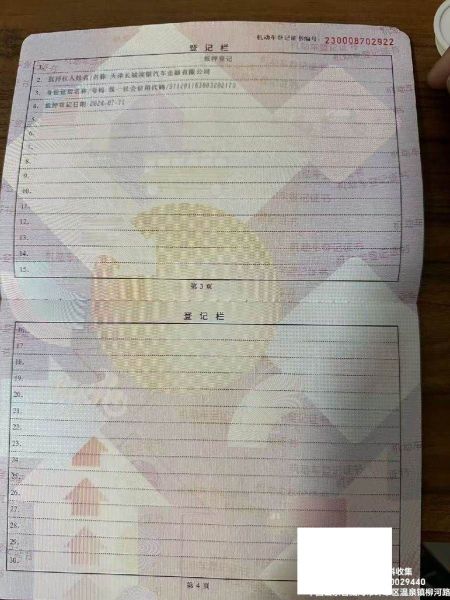 机动车登记证书编号: 230008702922
登记栏
1. 抵押登记
2. 抵押权人姓名/名称:天津长城滨银汽车金融有限公司
3. 身份证明名称/号码:统一社会信用代码/
4. 抵押登记日期:2024-07-11
5.
6.
7.
8.
9.
10.
11.
12.
13.
14.
15.
第3页
登记栏
16.
17.
18.
19.
20.
21.
22.
23.
24.
25.
26.
27.
28.
29.
30.
第4页
收集
0029440
区温泉镇柳河路